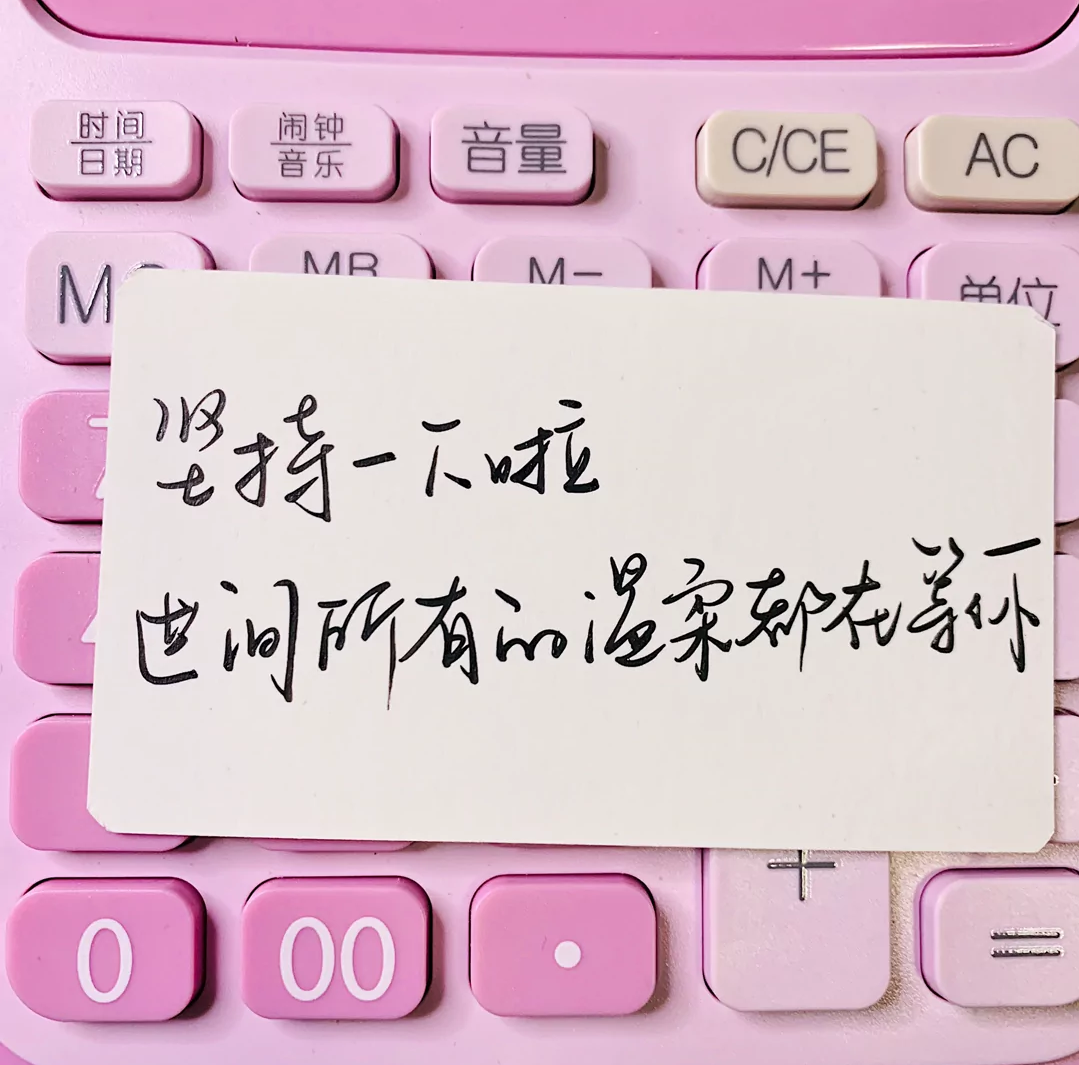 时间 闹钟 音量 C/CE AC
日期 音乐
MR M− M+ 单位
坚持一下啦
世间所有的温柔都在等你
+
0 00 • =